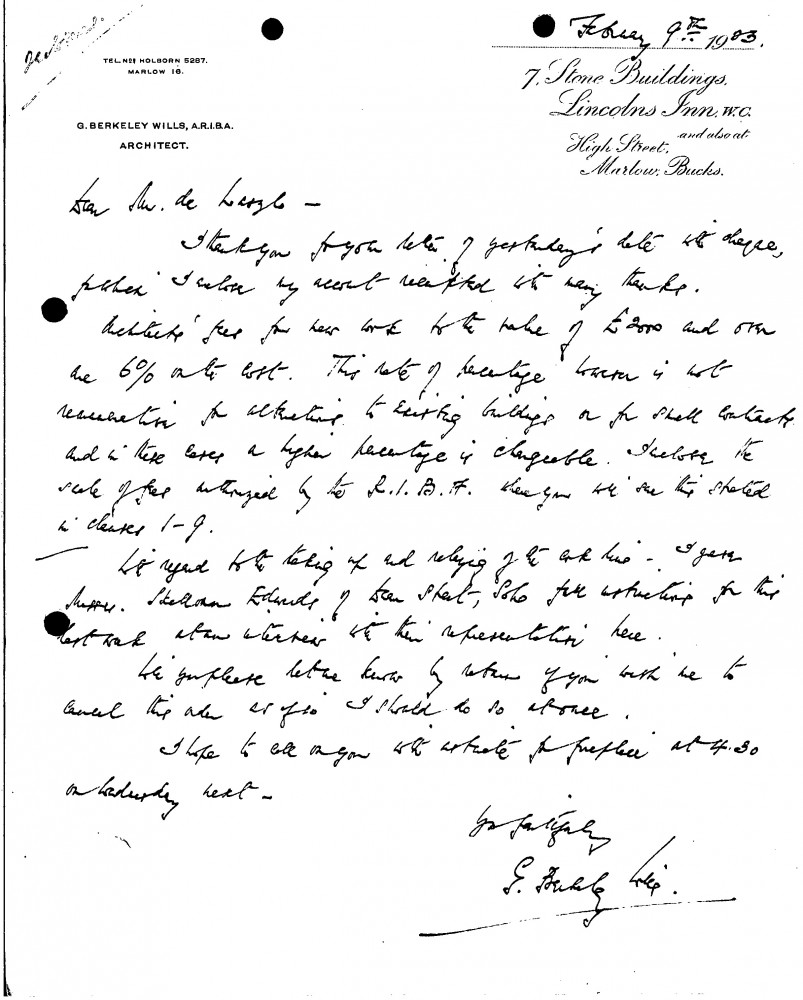 February 9th 1923.
TEL. Nos HOLBORN 5287.
MARLOW 16.
7, Stone Buildings,
Lincolns Inn, W.C.
and also at
High Street,
Marlow, Bucks.
G. BERKELEY WILLS, A.R.I.B.A.
ARCHITECT.
Dear Mr. de Laszlo —
I thank you for your letter of yesterday's date with cheque,
for which I enclose my account receipted with many thanks.
Architects' fees for new work to the value of £2000 and over
are 6% on the cost. This rate of percentage however is not
remunerative for alterations to existing buildings or for small contracts
and in these cases a higher percentage is chargeable. I enclose the
scale of fees authorized by the R.I.B.A. where you will see this stated
in clauses 1-9.
With regard to the taking up and relaying of the cork lino — I gave
Messrs. Edwards of Dean Street, Soho full instructions for this
last week at an interview with their representative here.
Will you please let me know by return if you wish me to
cancel this order as if so I should do so at once.
I hope to call on you with for fireplace at 4.30
on Wednesday next —
Yours faithfully
G. Berkeley Wills.